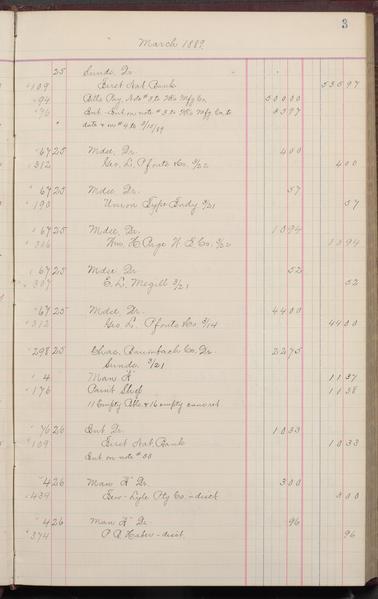 3
March 1889.
25 Sunds. Dr.
109 First Nat. Bank 53597
94 Bills Pay. Note #3 to Mfg Co. 50000
76 Int. Int on note #3 to Mfg Co. to 3597
date & on #4 to 3/15/89
67 25 Mdse. Dr. 400
312 Geo. L. Pfouts Co. 3/22 400
67 25 Mdse. Dr. 57
190 Union Type Fndy 3/21 57
67 25 Mdse. Dr. 1094
316 Wm. H. Page W. T. Co. 3/20 1094
67 25 Mdse. Dr. 52
307 E. L. Megill 3/21 52
67 25 Mdse. Dr. 4400
312 Geo. L. Pfouts Co. 3/14 4400
298 25 Chas. Baumbach Co. Dr. 2275
Sunds. 3/21
4 Man'f 1137
176 Paint Shop 1138
11 Empty Bbls & 16 empty
76 26 Int. Dr. 1033
109 First Nat. Bank 1033
Int on note #
4 26 Man'f Dr. 300
439 Lyle Ptg Co. - disct 300
4 26 Man'f Dr. 96
374 - disct. 96